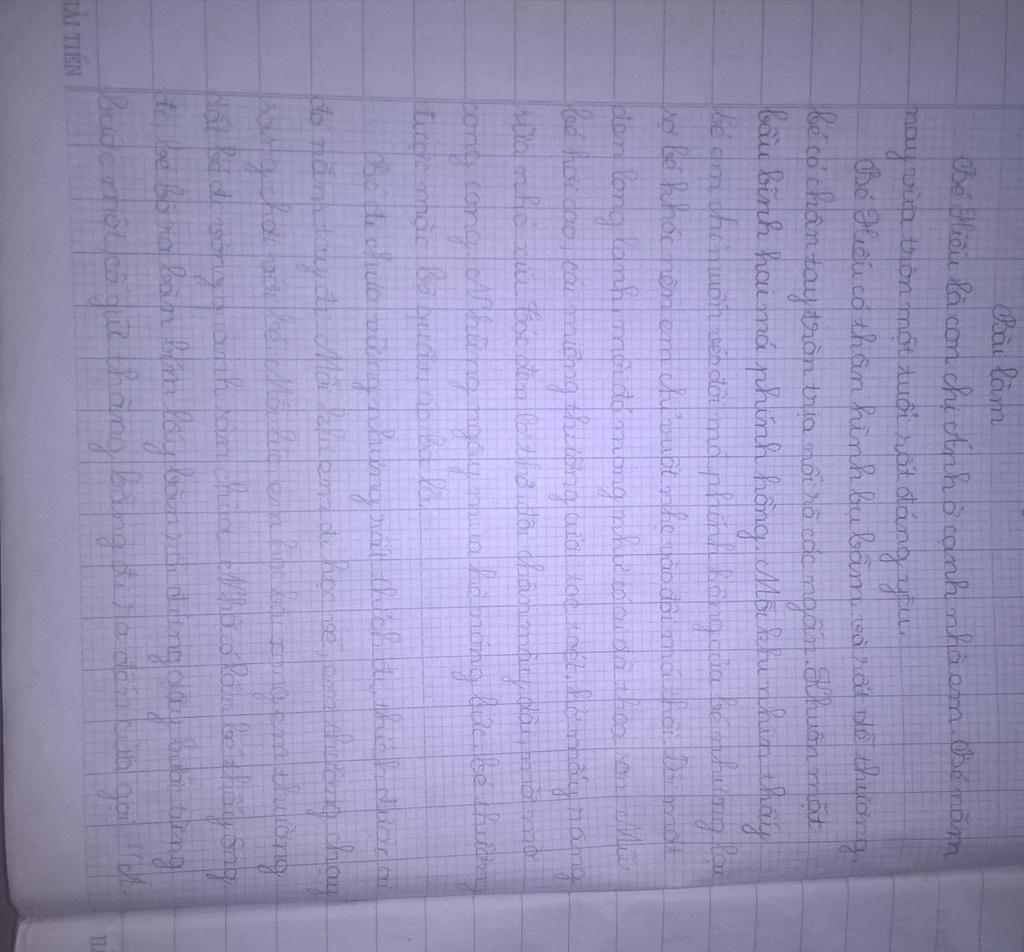 Bài làm
Bé Hiếu là con chị Ánh ở cạnh nhà em. Bé năm
nay vừa tròn một tuổi rất đáng yêu.
Bé Hiếu có thân hình bụ bẫm và rất dễ thương,
bé có chân tay tròn trịa nổi rõ các ngấn. Khuôn mặt
bầu bĩnh hai má phính hồng. Mỗi khi nhìn thấy
bé em chỉ muốn véo đôi má phính hồng của bé nhưng lại
sợ bé khóc nên em chỉ vuốt nhẹ vào đôi má thôi. Đôi mắt
đen long lanh, môi đỏ mọng như son. Mũi
bé hơi cao, cái miệng thường cười toe toét, hở mấy răng
sữa nhỏ xíu. Tóc đen lơ thơ, đôi chân mày dài, mờ mờ
cong cong. Những ngày mùa hè nóng bức, bé thường
được mặc bộ quần áo ba lỗ.
Bé đi chưa vững nhưng rất thích đi, thích được ai
đó nắm tay đi. Mỗi khi em đi học về, em thường chạy
sang chơi với bé. Mỗi lúc em học bài xong em thường
dắt bé đi vòng quanh xóm chơi. Nhớ có lần bé thấy ông
đi bé bò ra bàn bím lấy bàn rồi đứng dậy bước từng
bước một, cố giữ thăng bằng đi ra đến cửa gọi "A
HẢI TIẾN